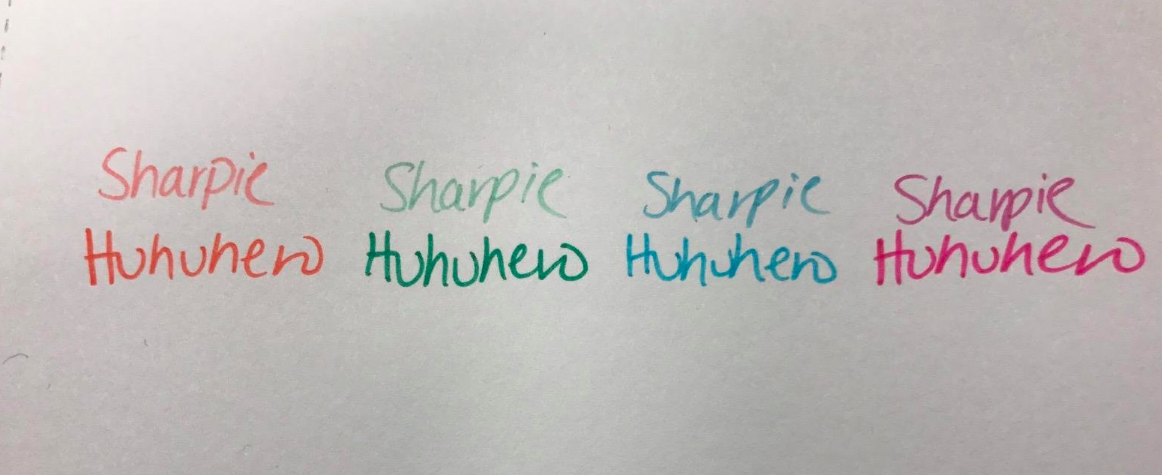 Sharpie Sharpie Sharpie Sharpie
Huhuhero Huhuhero Huhuhero Huhuhero